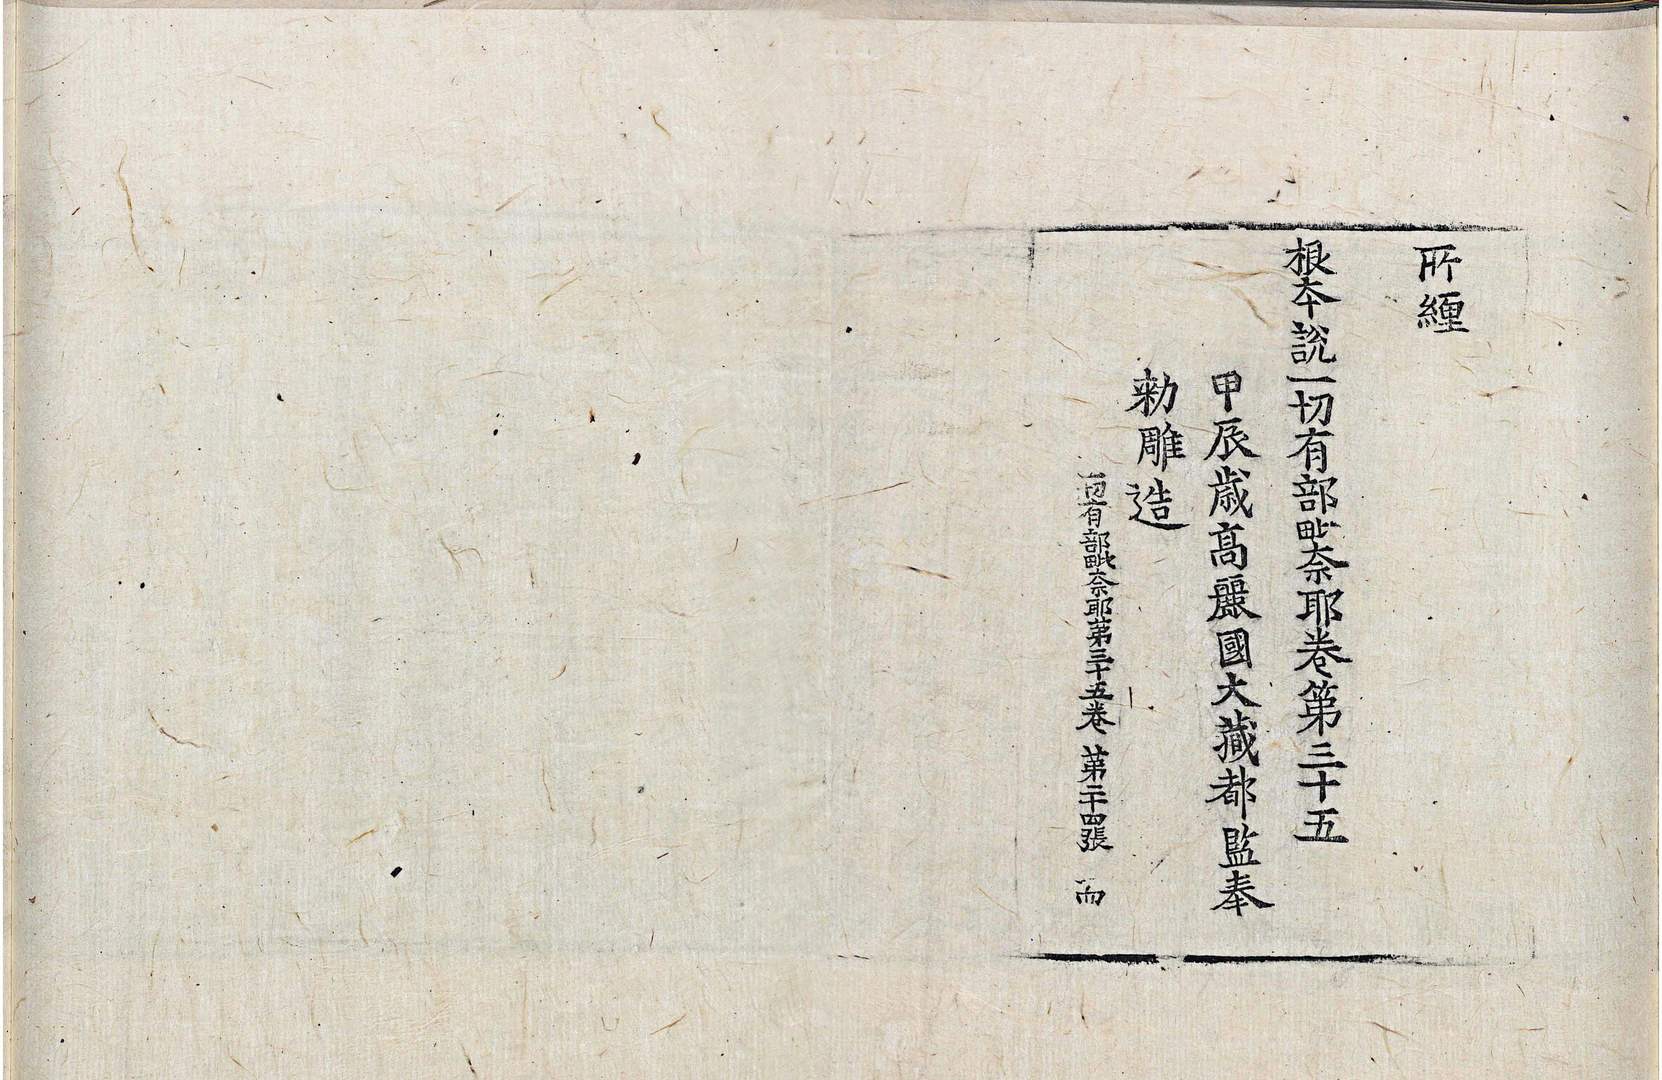 所纏
根本說一切有部毗奈耶卷第三十五
甲辰歳高麗國大藏都監奉
勑雕造
一切有部毗奈耶苐三十五卷 苐二十四張 而